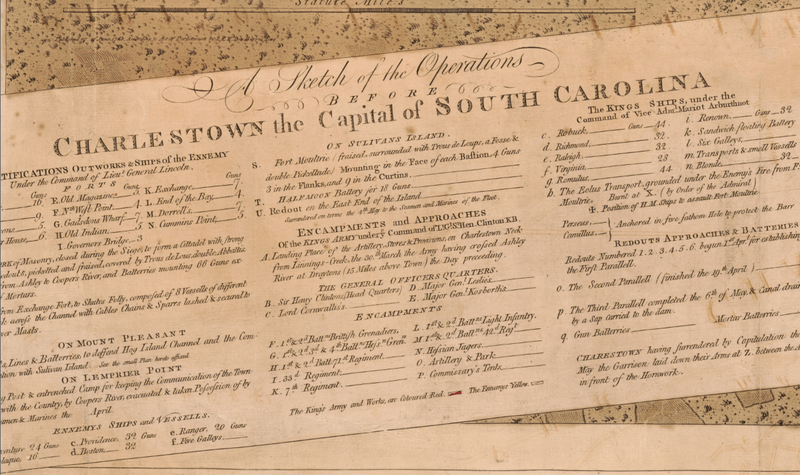 Statute Miles
A Sketch of the Operations
BEFORE
CHARLESTOWN the Capital of SOUTH CAROLINA
OUTWORKS & SHIPS of the ENEMY
Under the Command of Lieut. General Lincoln.
FORTS
Guns Guns Guns
16. E. Old Magazine 4. K. Exchange 7.
F. Nth. West Point 4. L. End of the Bay 4.
9. G. Gadsdens Wharf 7. M. Dorrells 7.
5. H. Old Indian 5. N. Cummins Point 5.
House 6. I. Governors Bridge 3
of Masonry, closed during the Siege, to form a Cittadel with strong
redoubt, picketted and fraised, covered by Trous de Loup, double Abbattis
from Ashley to Coopers River, and Batteries mounting 66 Guns
Morturs.
from Exchange Fort, to Shutes Folly, composed of 8 Vessels of different
across the Channel with Cables Chains & Sparrs lashed & secured to
Masts.
ON MOUNT PLEASANT
Lines & Batterries, to defend Hog Island Channel and the Com-
with Sulivan Island. See the small Plan hereto affixed
ON LEMPRIER POINT
Post & entrenched Camp for keeping the Communication of the Town
with the Country, by Coopers River, evacuated & taken Possession of by
Seamen & Marines the April.
ENNEMYS SHIPS and VESSELS.
24 Guns c. Providence, 32 Guns e. Ranger, 20 Guns
16 d. Boston 32 f. Five Galleys.
ON SULIVANS ISLAND.
S. Fort Moultrie (fraised, surrounded with Trous de Loups, a Fosse &
double Pickettade) Mounting in the Face of each Bastion 4 Guns
3 in the Flanks, and 9 in the Curtins
T. HALFMOON Battery for 18 Guns
U. Redout on the East End of the Island
Surrendered on terms the 4th May to the Seamen and Marines of the Fleet.
ENCAMPMENTS and APPROACHES
Of the KINGS ARMY under ye Command of Lt. Gl. Sr. Hen. Clinton KB.
A. Landing Place of the Artillery, Stores & Provisions, on Charlestown Neck
from Linnings-Creek, the 30th March the Army having crossed Ashley
River at Draytons (15 Miles above Town) the Day preceeding.
THE GENERAL OFFICERS QUARTERS.
B. Sir Henry Clintons (Head Quarters) D. Major Genl. Leslies
C. Lord Cornwallis's E. Major Genl. Kosboths
ENCAMPMENTS
F. 1st & 2d Battns. Brittish Grenadiers. L. 1st & 2d Battns. Light Infantry.
G. 1st & 2d, 3d & 4th Battns. Hess'n. Gren. M. 1st & 2d Battns. 42d Regt.
H. 1st & 2d Battn. 71st Regiment. N. Hessian Jagers
I. 33d Regiment O. Artillery & Park
K. 7th Regiment. P. Commissary's Tents
The King's Army and Works, are Coloured Red. The Ennemys Yellow.
The KINGS SHIPS, under the
Command of Vice Adml. Mariot Arburthnot
c. Robuck Guns 44. i. Renown Guns 32
d. Richmond 32 k. Sandwich floating Battery
e. Raleigh 32 l. Six Galleys
f. Virginia 28 m. Transports & small Vessels
g. Romulus 44 n. Blonde 32
h. The Eolus Transport, grounded under the Ennemy's Fire from F
Moultrie, Burnt at X. (by Order of the Admiral)
Position of H.M. Ships to assault Fort Moultrie
Perseus
Camillus Anchored in five fathom Hole to protect the Barr
REDOUTS APPROACHES & BATTERIES
Redouts Numbered 1. 2. 3. 4. 5. 6. begun 1st Apr. for establishing
the First Parallell.
o. The Second Parallell (finished the 19th April)
p The Third Parallell completed the 6th of May, & Canal drain
by a sap carried to the dam.
q. Gun Batterries Mortar Batterries
CHARESTOWN having surrendered by Capitulation the
May the Garrison laid down their Arms at Z. between the
in front of the Hornwork.